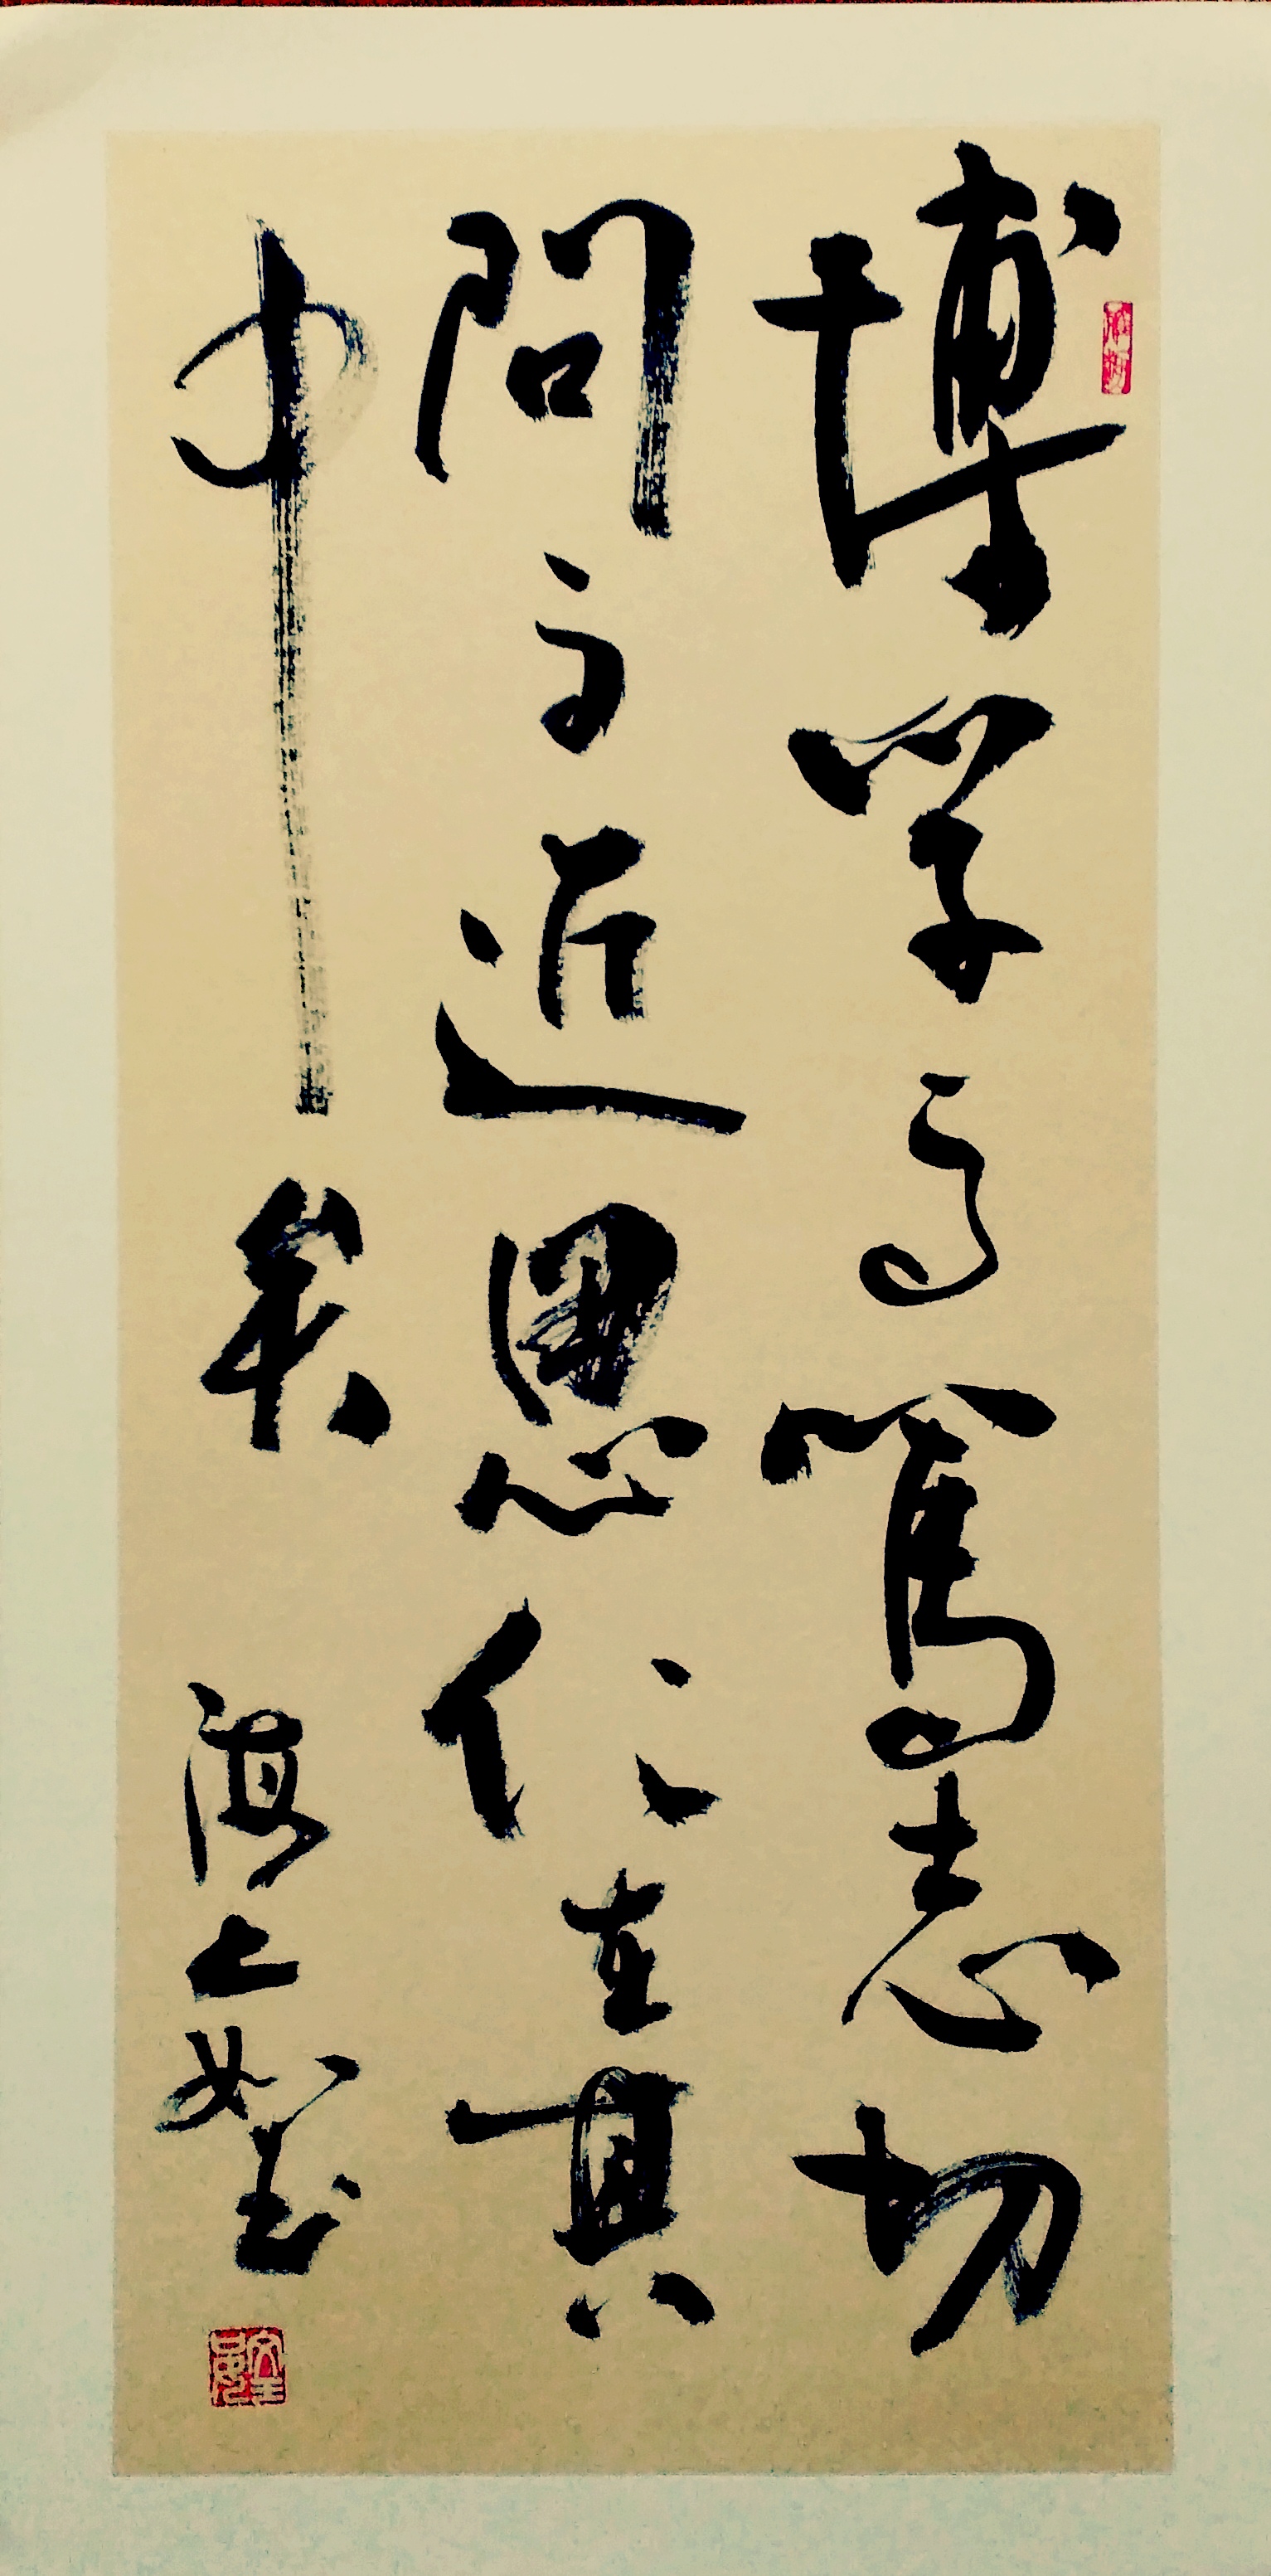 博学而篤志切
問而近思仁在其
中矣
海上